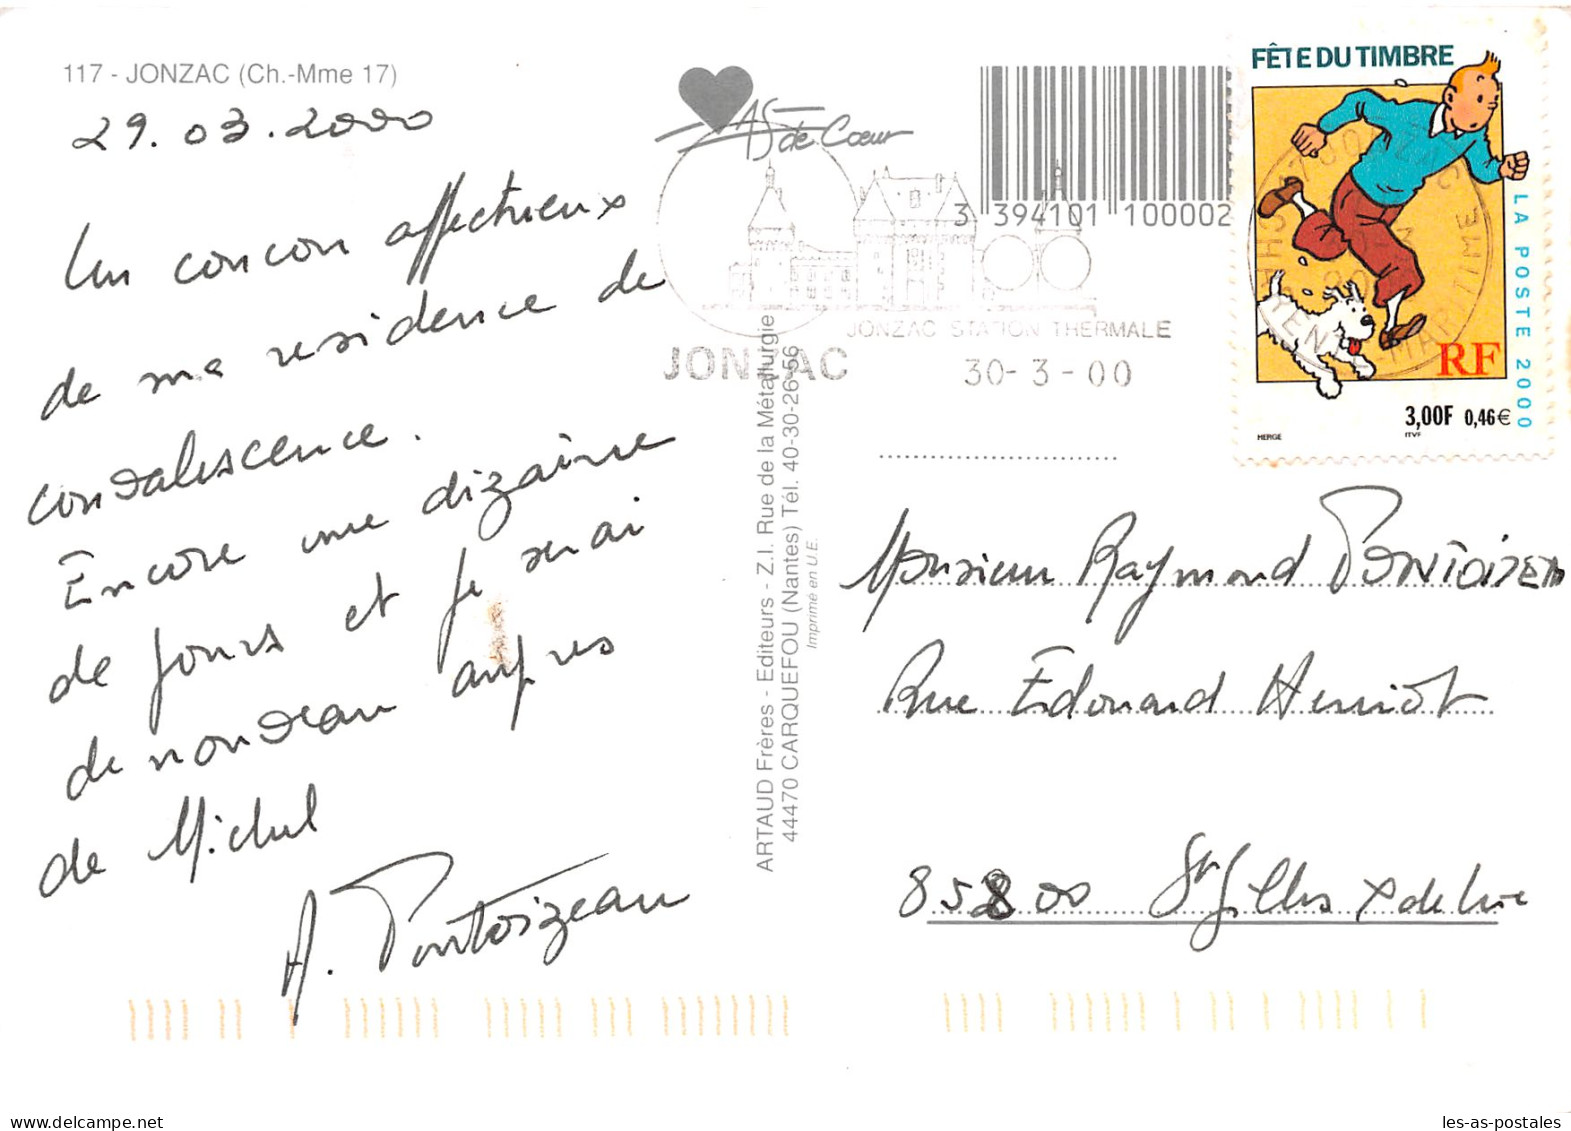 117 - JONZAC (Ch.-Mme 17)
29.03.2000
Un coucou affectueux
de ma residence de
convalescence.
Encore une dizaine
de jours et je serai
de nouveau aupres
de Michel
A. Pontoizeau
AS de Cœur
3 394101 100002
JONZAC STATION THERMALE
JONZAC
30-3-00
ARTAUD Frères - Editeurs - Z.I. Rue de la Métallurgie
44470 CARQUEFOU (Nantes) Tél. 40-30-26-56
Imprimé en U.E.
FÊTE DU TIMBRE
LA POSTE 2000
RF
3,00F 0,46€
HERGE
ITVF
MARITIME
Monsieur Raymond
Rue Édouard Henriot
85800 St Gilles X de Vie
www.delcampe.net
les-as-postales